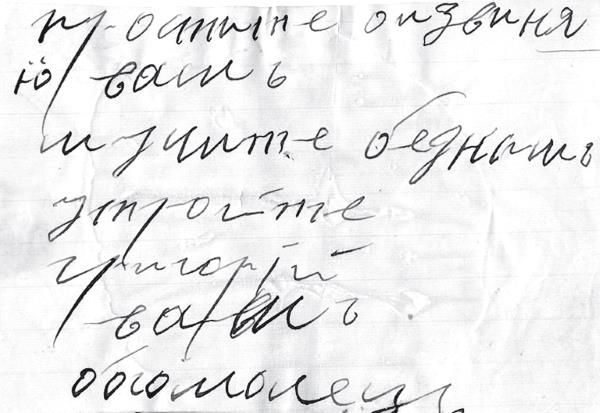 простите оизвиня
ю вашъ
мучите беднымъ
устройте
григорій
вашъ
богомолец